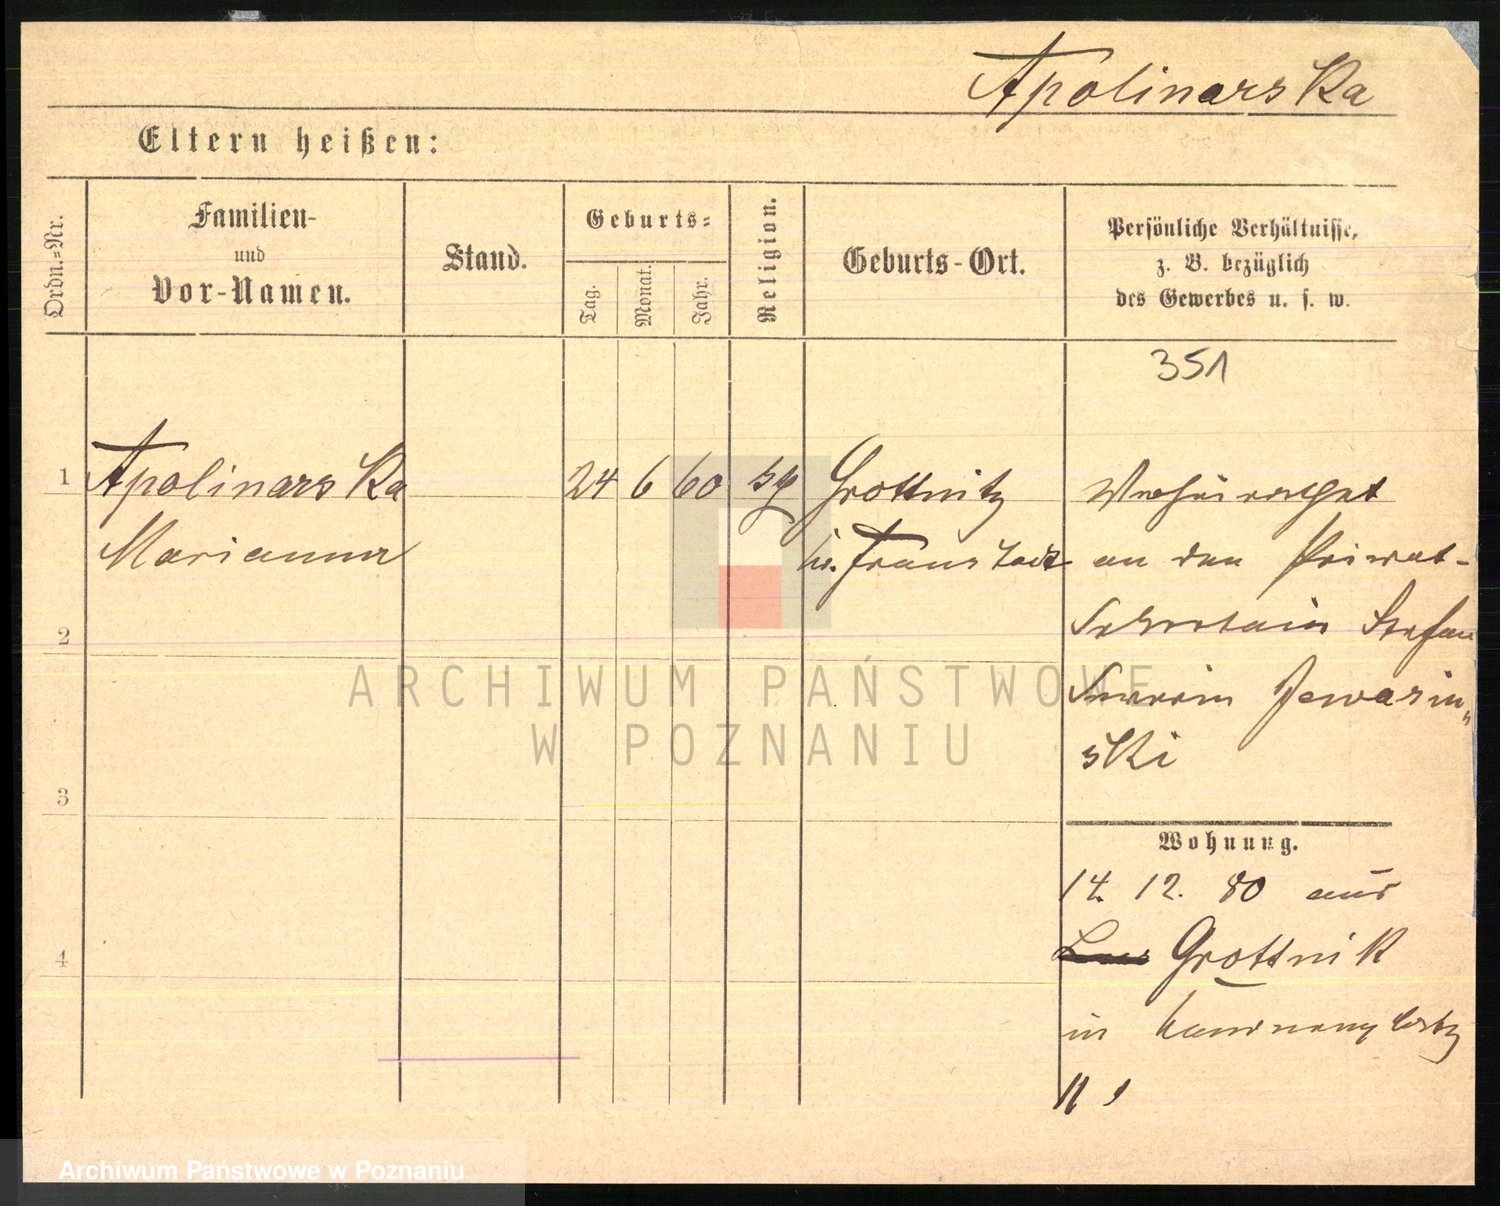 Apolinarska
Eltern heißen:
Ordn.=Nr.
Familien-
und
Vor-Namen.
Stand.
Geburts=
Tag.
Monat.
Jahr.
Religion.
Geburts-Ort.
Persönliche Verhältnisse,
z. B. bezüglich
des Gewerbes u. s. w.
351
1 Apolinarska 24 6 60 Grottnitz Verheirathet
Marianna Kr. Fraustadt an den Privat-
2 Sekretair Stefan
ski
3
Wohnung.
14. 12. 80 aus
4 Grottnik
in
N 1
ARCHIWUM PAŃSTWOWE
W POZNANIU
Archiwum Państwowe w Poznaniu